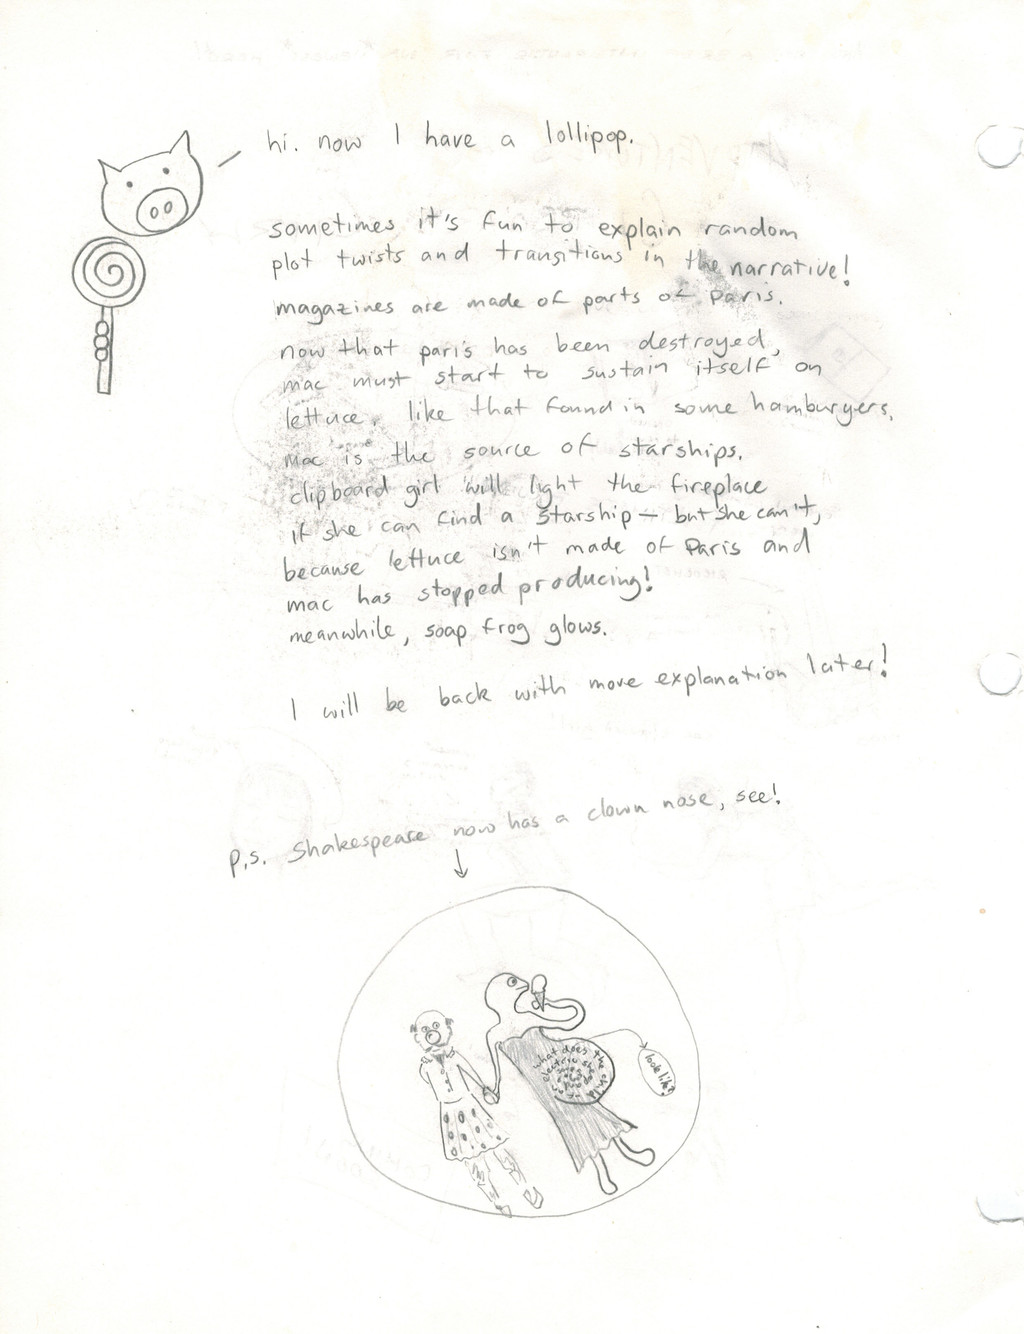 hi. now I have a lollipop.
sometimes it's fun to explain random
plot twists and transitions in the narrative!
magazines are made of parts of Paris.
now that paris has been destroyed,
mac must start to sustain itself on
lettuce, like that found in some hamburgers.
mac is the source of starships.
clipboard girl will light the fireplace
if she can find a starship — but she can't,
because lettuce isn't made of Paris and
mac has stopped producing!
meanwhile, soap frog glows.
I will be back with more explanation later!
p.s. Shakespeare now has a clown nose, see!
what does the child
look like?